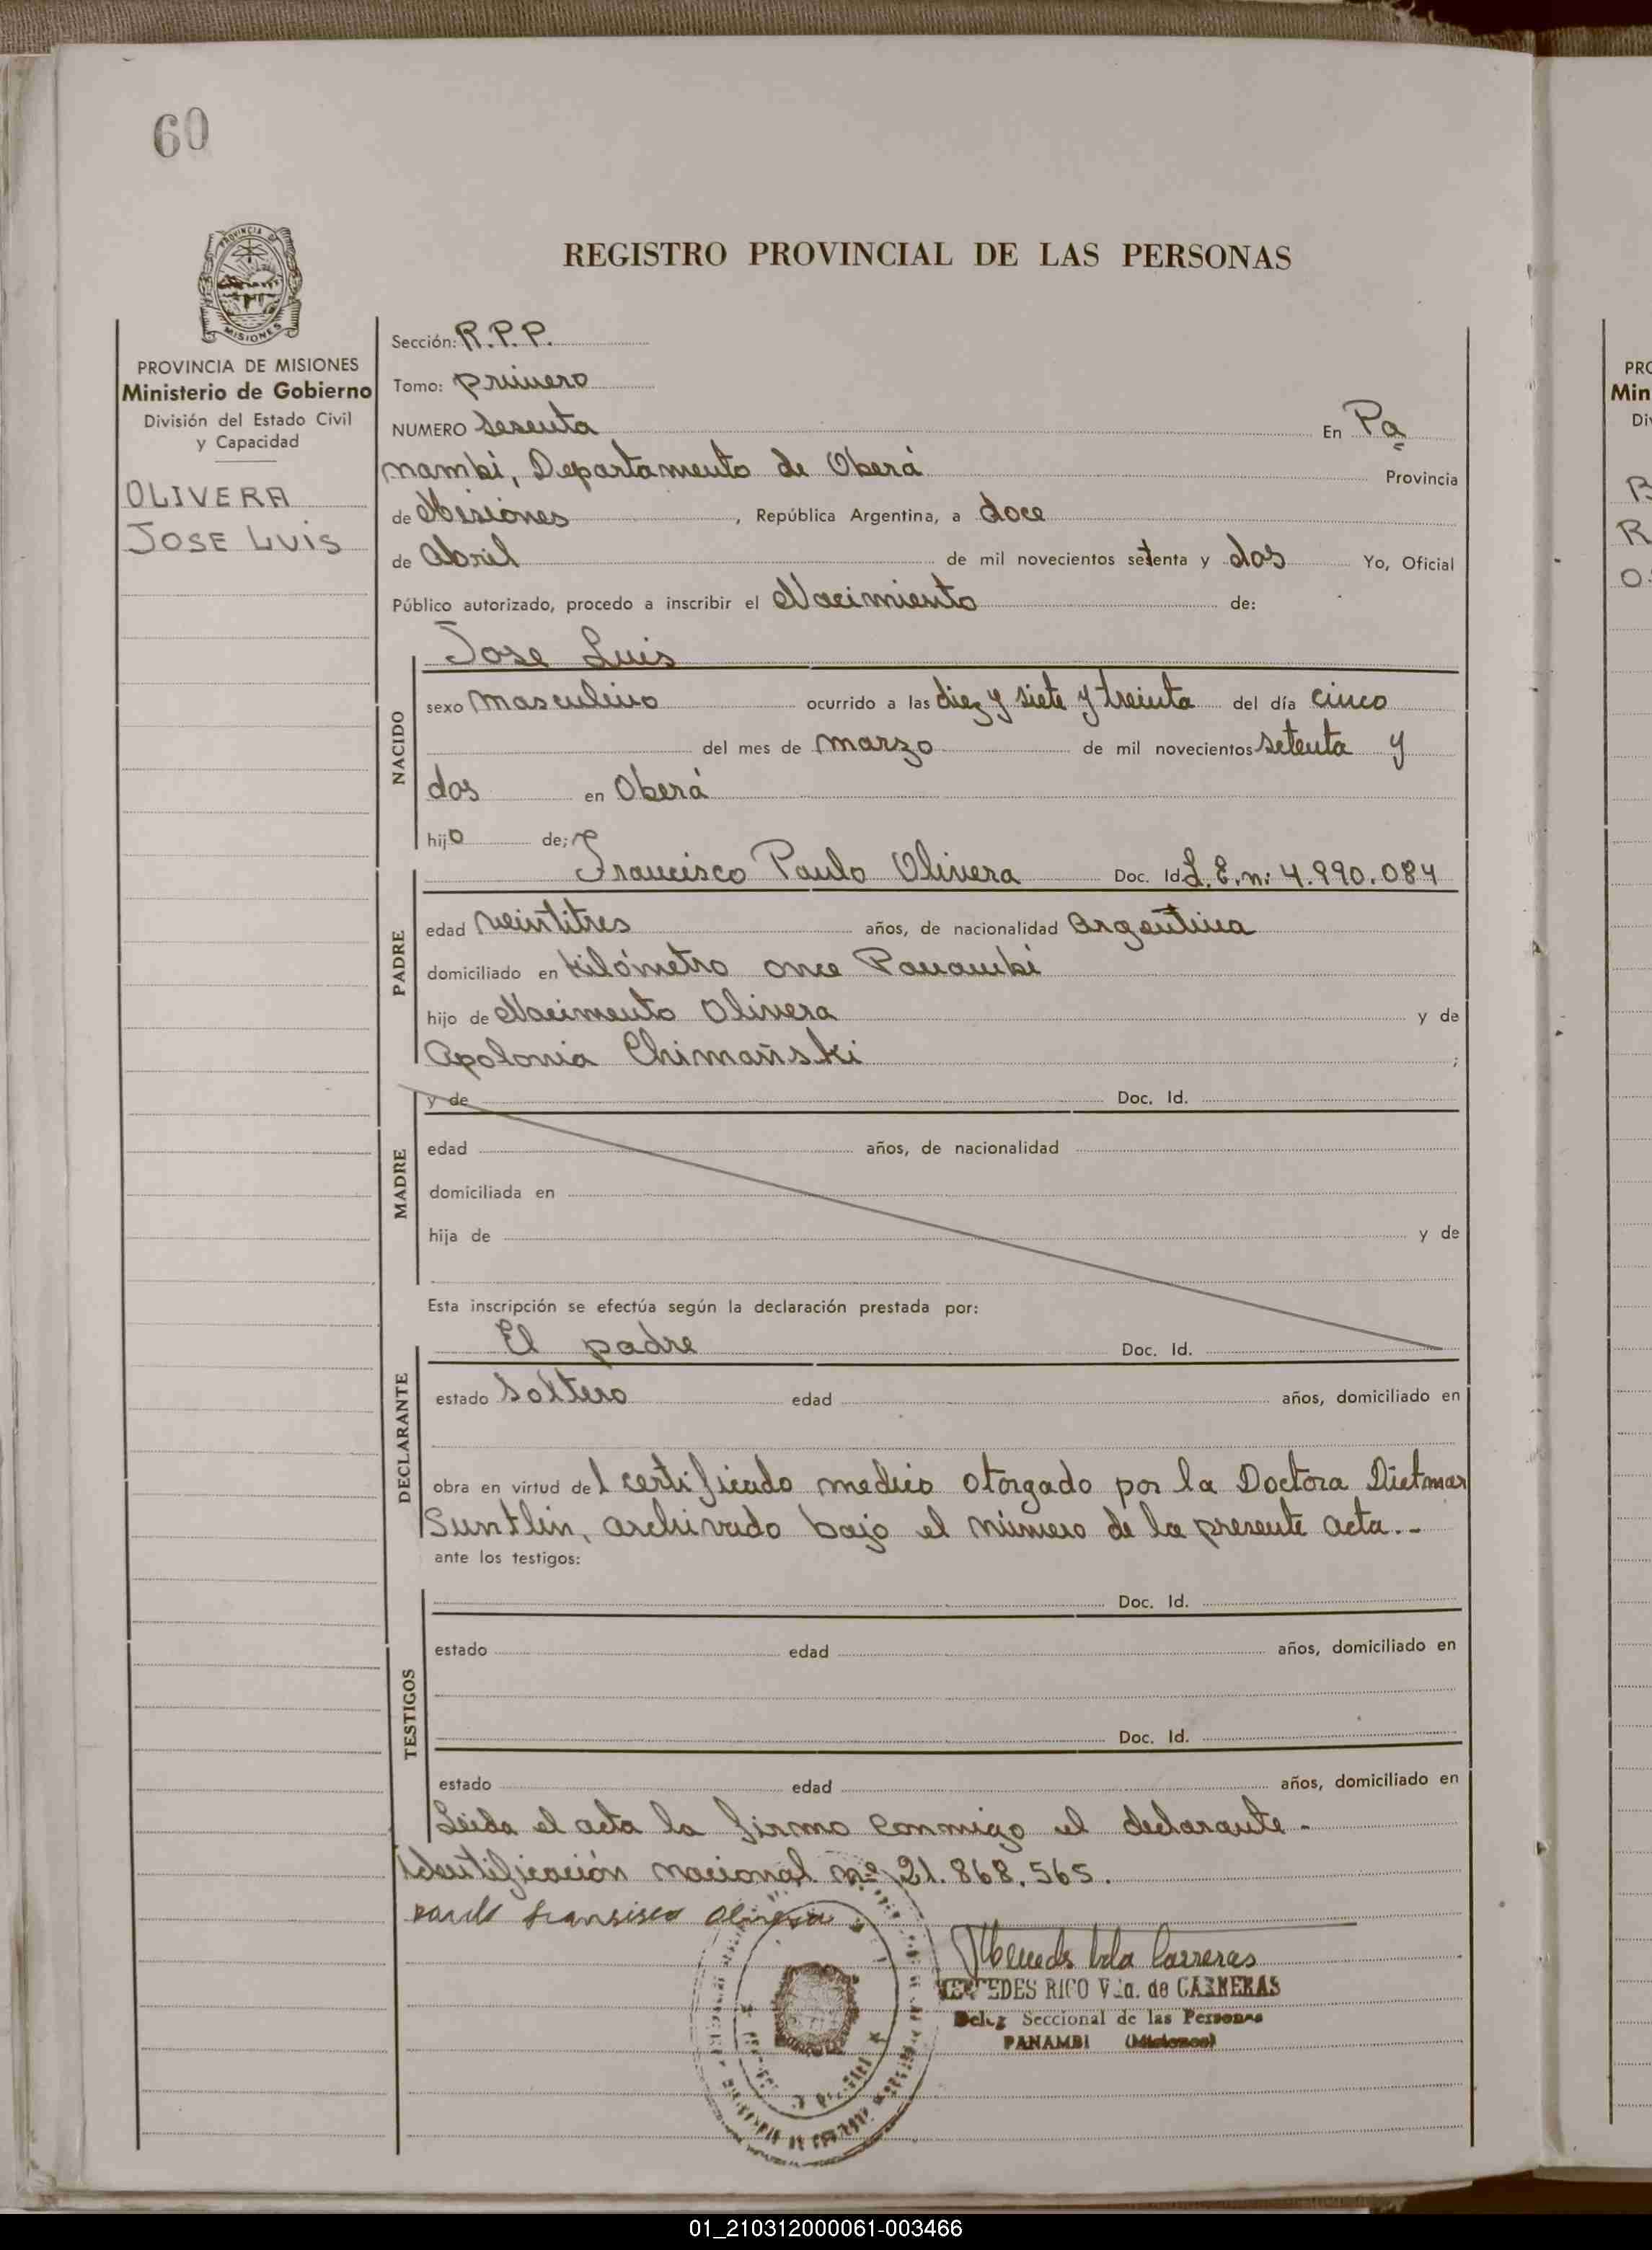 60
PROVINCIA DE
MISIONES
REGISTRO PROVINCIAL DE LAS PERSONAS
PROVINCIA DE MISIONES
Ministerio de Gobierno
División del Estado Civil
y Capacidad
OLIVERA
JOSE LUIS
Sección: R.P.P.
Tomo: primero
NUMERO Sesenta En Pa
nambi, Departamento de Oberá Provincia
de Misiones, República Argentina, a doce
de Abril de mil novecientos setenta y dos Yo, Oficial
Público autorizado, procedo a inscribir el Nacimiento de:
NACIDO
Jose Luis
sexo masculino ocurrido a las diez y siete y treinta del día cinco
del mes de marzo de mil novecientos setenta y
dos en Oberá
hijo de;
PADRE
Francisco Paulo Olivera Doc. Id. L.E.n: 4.990.084
edad veintitres años, de nacionalidad Argentina
domiciliado en kilómetro once Panambi
hijo de Nacimento Olivera y de
Apolonia Chimañski ;
MADRE
y de Doc. Id.
edad años, de nacionalidad
domiciliada en
hija de y de
Esta inscripción se efectúa según la declaración prestada por:
DECLARANTE
El padre Doc. Id.
estado Soltero edad años, domiciliado en
obra en virtud del certificado medico otorgado por la Doctora Dietmar
Suntlin, archivado bajo el número de la presente acta.-
ante los testigos:
TESTIGOS
Doc. Id.
estado edad años, domiciliado en
Doc. Id.
estado edad años, domiciliado en
Leida el acta la firmo conmigo el declarante.-
Identificación nacional nº 21.868.565.
Francisco Olivera
MERCEDES RICO Vda. de CARRERAS
Deleg Seccional de las Personas
PANAMBI (Misiones)
PRO
Min
Di
01_210312000061-003466